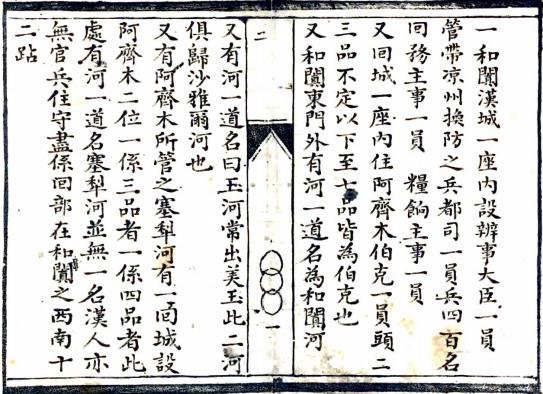 一和闐漢城一座內設辦事大臣一員
管帶凉州換防之兵都司一員兵四百名
回務主事一員　糧餉主事一員
又回城一座內住阿齊木伯克一員頭二
三品不定以下至七品皆為伯克也
又和闐東門外有河一道名為和闐河
一
二
又有河一道名曰玉河常出美玉此二河
俱歸沙雅爾河也
又有阿齊木所管之塞犁河有一回城設
阿齊木二位一係三品者一係四品者此
處有河一道名塞犁河並無一名漢人亦
無官兵住守盡係回部在和闐之西南十
二跕